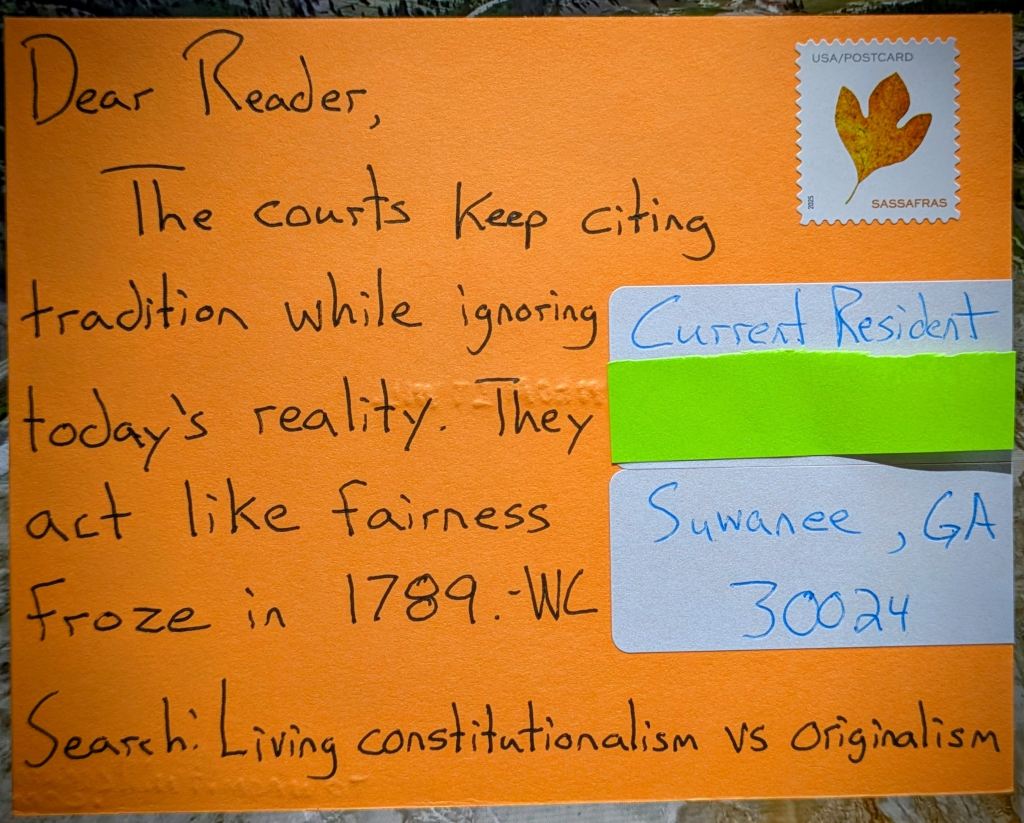 Dear Reader,
The courts keep citing
tradition while ignoring
today's reality. They
act like fairness
froze in 1789. -WC
Search: Living constitutionalism vs originalism
USA/POSTCARD
2025
SASSAFRAS
Current Resident
Suwanee, GA
30024